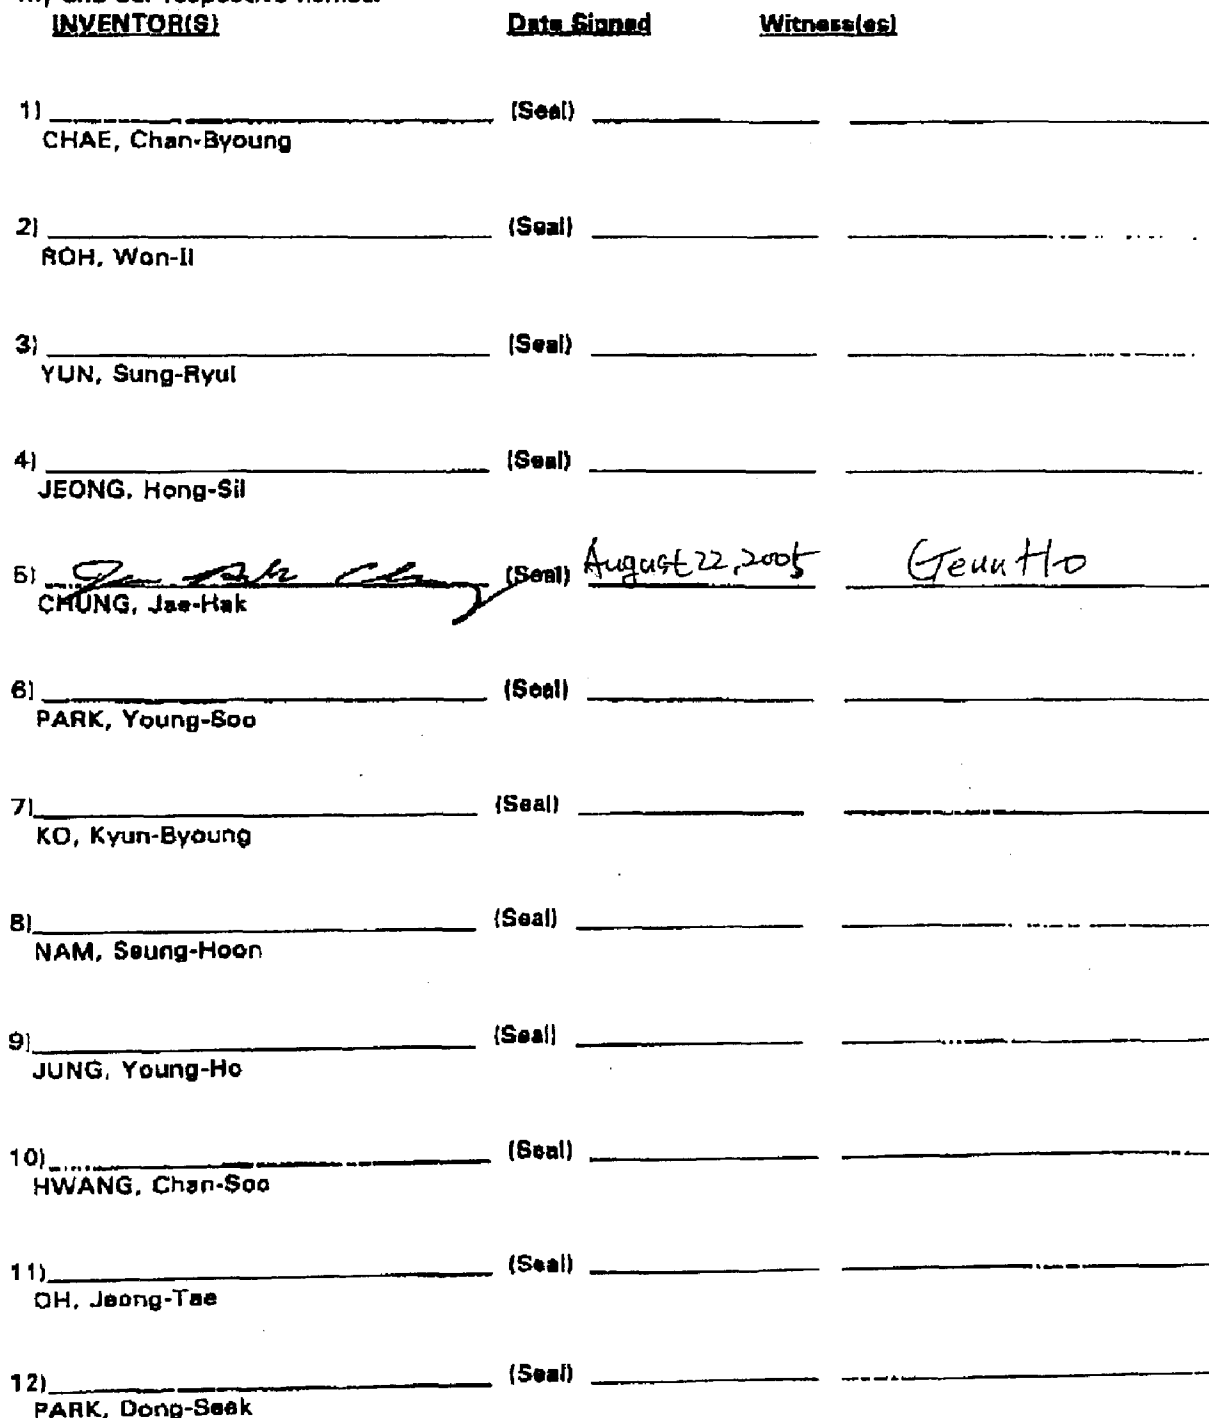 my and our respective names.
INVENTOR(S) Date Signed Witness(es)
1) (Seal)
CHAE, Chan-Byoung
2) (Seal)
ROH, Won-Il
3) (Seal)
YUN, Sung-Ryul
4) (Seal)
JEONG, Hong-Sil
5) Jae Hak Chung (Seal) August 22, 2005 Geun Ho
CHUNG, Jae-Hak
6) (Seal)
PARK, Young-Soo
7) (Seal)
KO, Kyun-Byoung
8) (Seal)
NAM, Seung-Hoon
9) (Seal)
JUNG, Young-Ho
10) (Seal)
HWANG, Chan-Soo
11) (Seal)
OH, Jeong-Tae
12) (Seal)
PARK, Dong-Seek